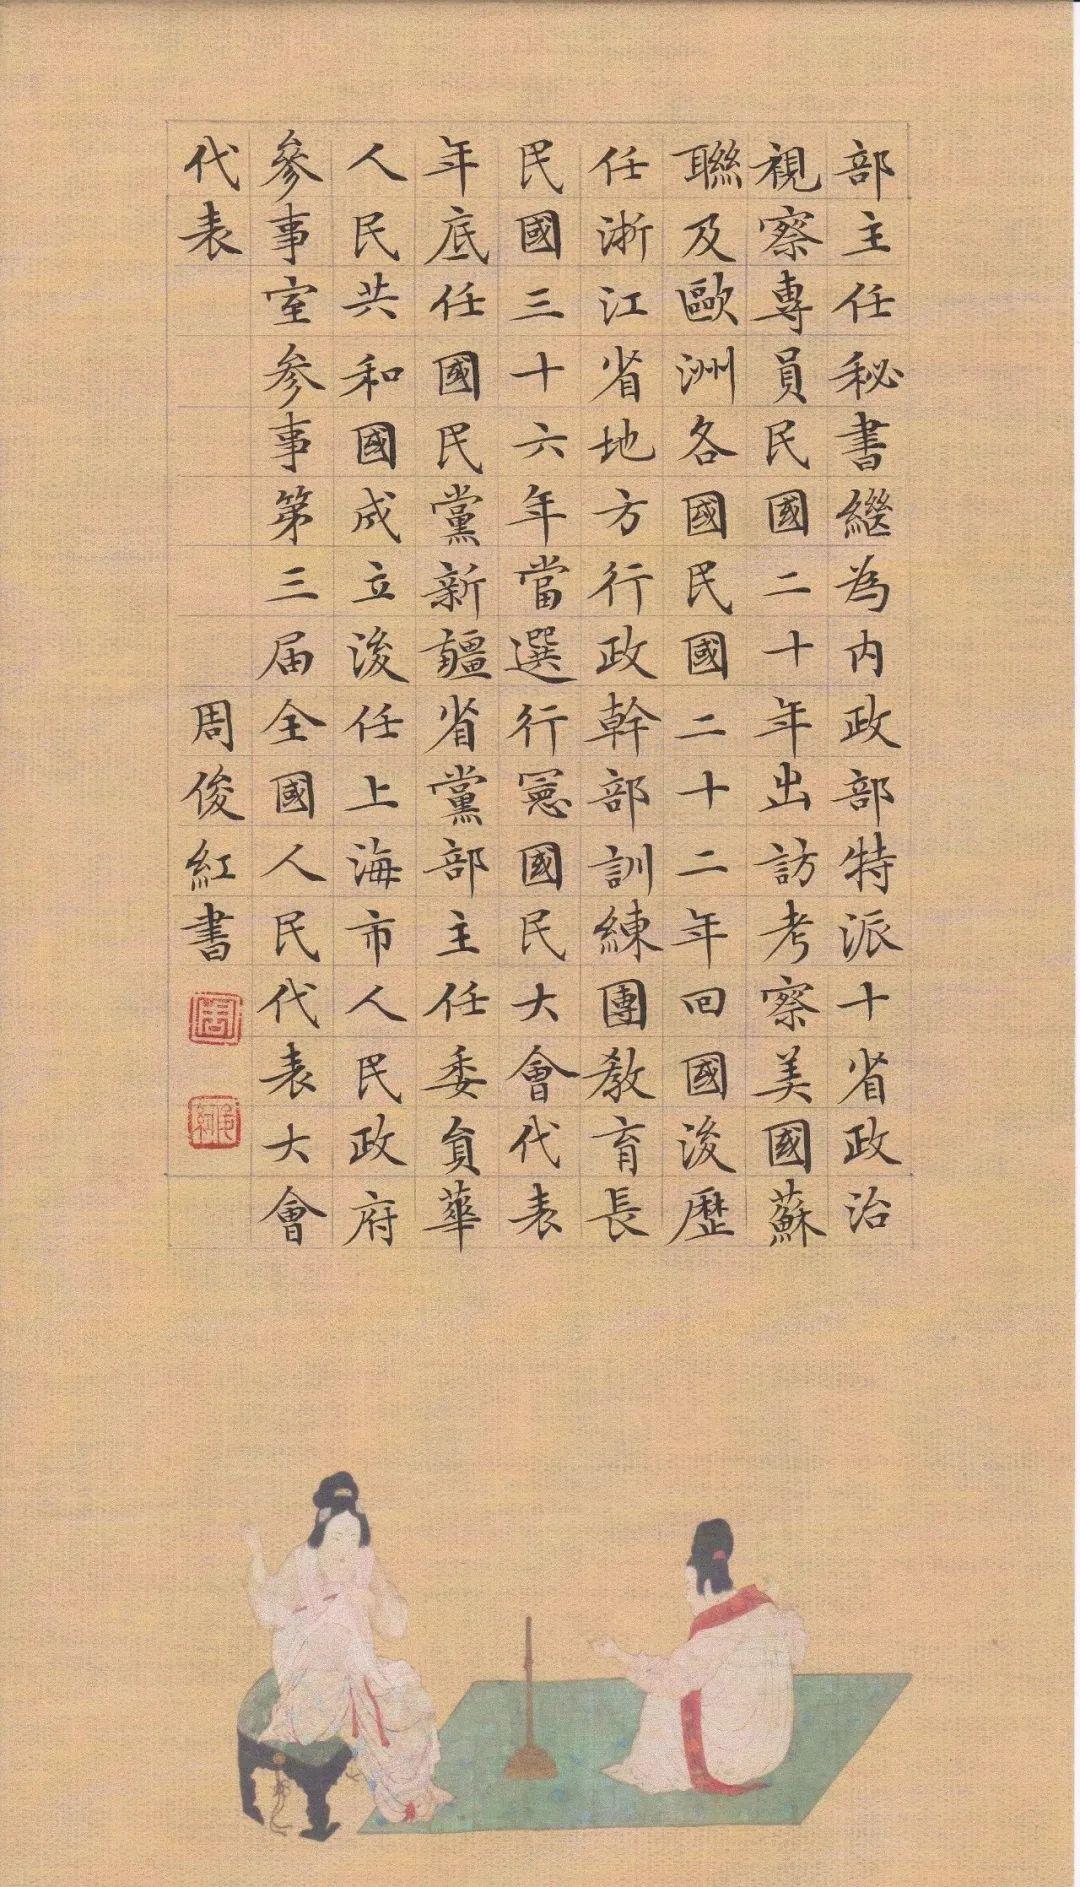 部主任秘書繼為内政部特派十省政治
視察專員民國二十年出訪考察美國蘇
聯及歐洲各國民國二十二年回國後歷
任浙江省地方行政幹部訓練團教育長
民國三十六年當選行憲國民大會代表
年底任國民黨新疆省黨部主任委員華
人民共和國成立後任上海市人民政府
參事室參事第三届全國人民代表大會
代表
周俊紅書
周